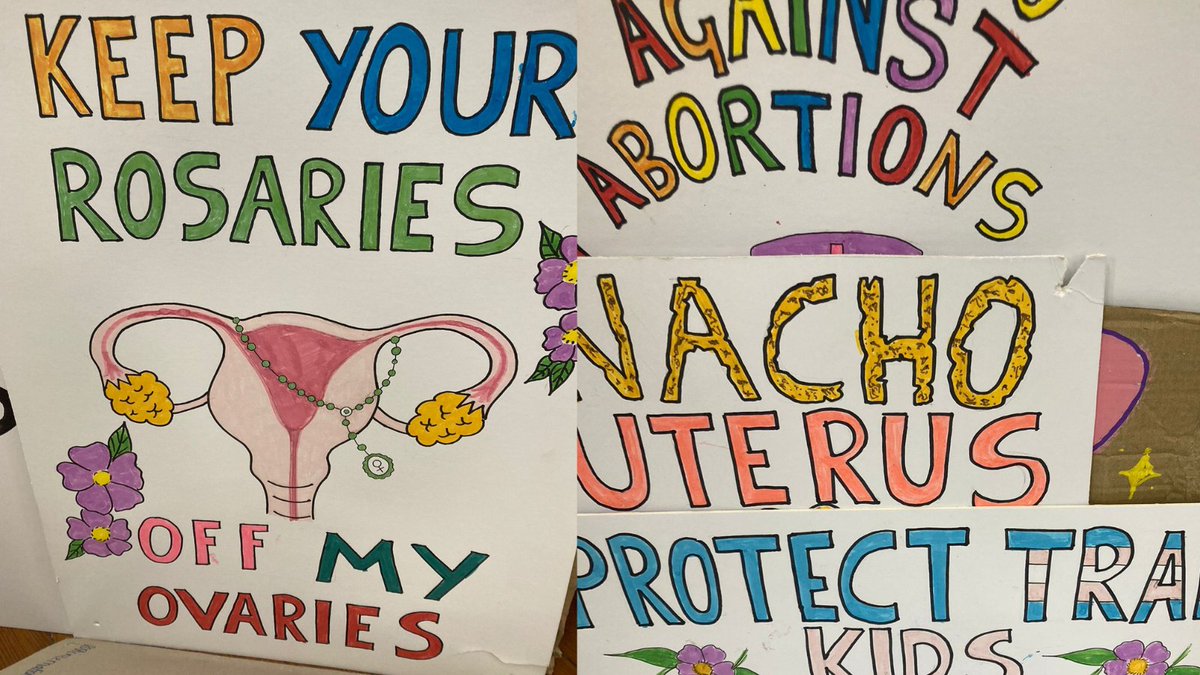 KEEP YOUR
ROSARIES
OFF MY
OVARIES
AGAINST
ABORTIONS
NACHO
UTERUS
PROTECT TRA
KIDS